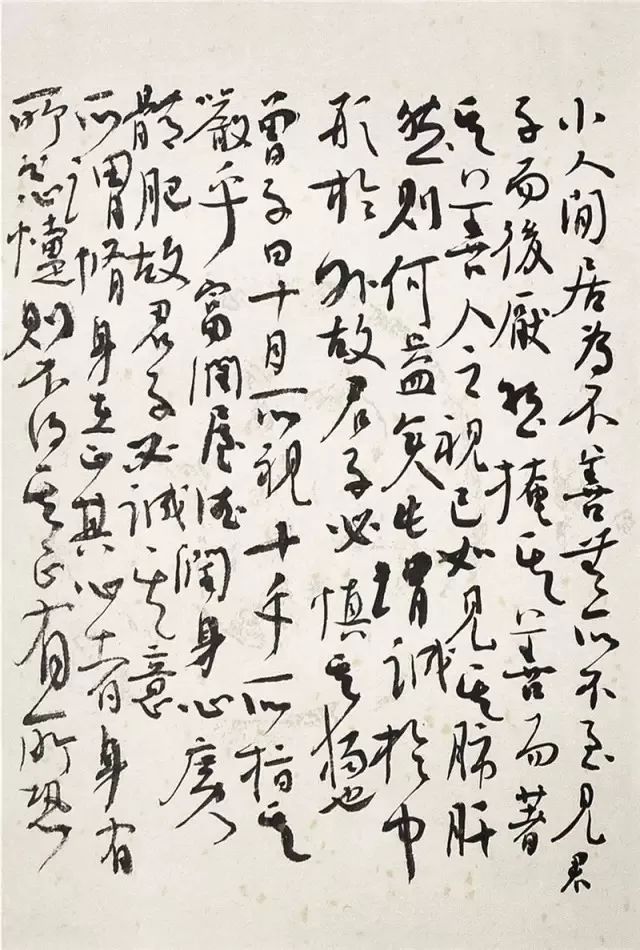 小人閒居為不善無所不至見君
子而後厭然掩其善而著
其善人之視己如見其肺肝
然則何益矣此謂誠於中
形於外故君子必慎其獨也
曾子曰十目所視十手所指其
嚴乎富潤屋德潤身心廣
體肥故君子必誠其意
所謂脩身在正其心者身有
所忿懥則不得其正有所恐